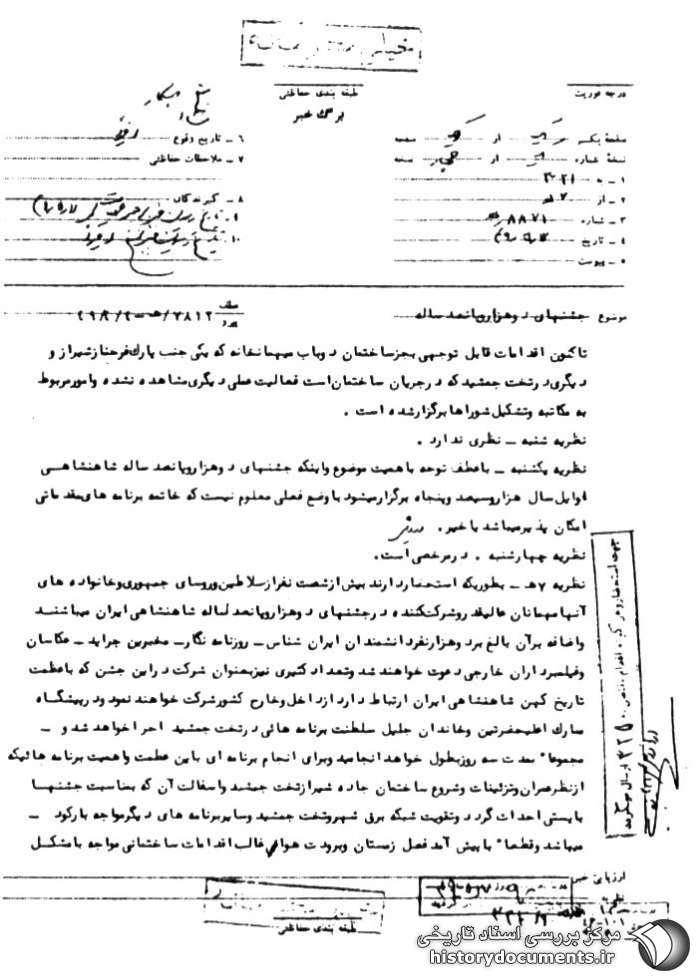 خیلی محرمانه
درجه فوریت
طبقه بندی حفاظتی
برگ خبر
صفحه یکم از صفحه
نسخه شماره از چهار نسخه
۱ ـ به ۳۲۱
۲ ـ از ۷ ه
۳ ـ شماره ۸۸۷۱
٤ ـ تاریخ
۵ ـ پیوست
۶ ـ تاریخ وقوع
۷ ـ ملاحظات حفاظتی
۸ ـ گیرندگان
۹ ـ
۱۰ ـ
موضوع جشنهای دوهزاروپانصد ساله
عطف
تاکنون اقدامات قابل توجهی بجز ساختمان دوباب میهمانخانه که یکی جنب پارک فرحناز شیراز و
دیگری در تخت جمشید که در جریان ساختمان است فعالیت عملی دیگری مشاهده نشده و امور مربوط
به مکاتبه و تشکیل شوراها برگزار شده است .
نظریه شنبه ـ نظری ندارد .
نظریه یکشنبه ـ با عطف توجه باهمیت موضوع و اینکه جشنهای دوهزاروپانصد ساله شاهنشاهی
اوایل سال هزاروسیصد و پنجاه برگزار میشود با وضع فعلی معلوم نیست که خاتمه برنامه های مقدماتی
امکان پذیر میباشد یا خیر .
نظریه چهارشنبه . در مرخصی است.
نظریه ۷هـ ـ بطوریکه استحضار دارند بیش از شصت نفر از سلاطین و روسای جمهوری و خانواده های
آنها میهمانان عالیقدر و شرکت کننده در جشنهای دوهزاروپانصد ساله شاهنشاهی ایران میباشند
و اضافه بر آن بالغ بر دوهزار نفر دانشمندان ایران شناس ـ روزنامه نگار ـ مخبرین جراید ـ عکاسان
و فیلمبرداران خارجی دعوت خواهند شد و تعداد کثیری نیز بعنوان شرکت در این جشن که با عظمت
تاریخ کهن شاهنشاهی ایران ارتباط دارد از داخل و خارج کشور شرکت خواهند نمود و در پیشگاه
مبارک اعلیحضرتین و خاندان جلیل سلطنت برنامه هائی در تخت جمشید اجرا خواهد شد و ـ
مجموعا" مدت سه روز بطول خواهد انجامید و برای انجام برنامه ای باین عظمت و اهمیت برنامه هائیکه
از نظر عمران و تزئینات و شروع ساختمان جاده شیراز تخت جمشید و اسفالت آن که بمناسبت جشنها
بایستی احداث گردد و تقویت شبکه برق شهر و تخت جمشید و سایر برنامه های دیگر مواجه با رکود ـ
میباشد و قطعا" با پیش آمد فصل زمستان و برودت هوا غالب اقدامات ساختمانی مواجه با مشکل
ارزیابی خبر
طبقه بندی حفاظتی
مرکز بررسی اسناد تاریخی
historydocuments.ir